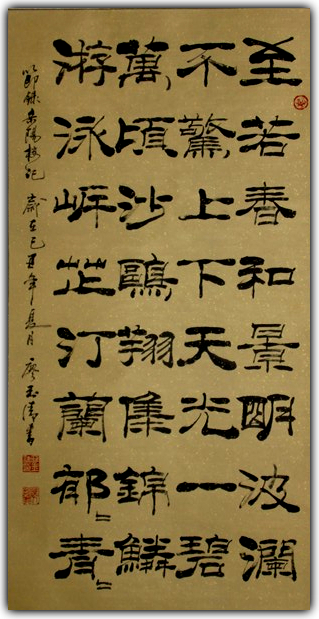 至若春和景明波瀾
不驚上下天光一碧
萬頃沙鷗翔集錦鱗
游泳岸芷汀蘭郁〻青〻
節錄岳陽樓记 歲在己丑年夏月 廖玉書